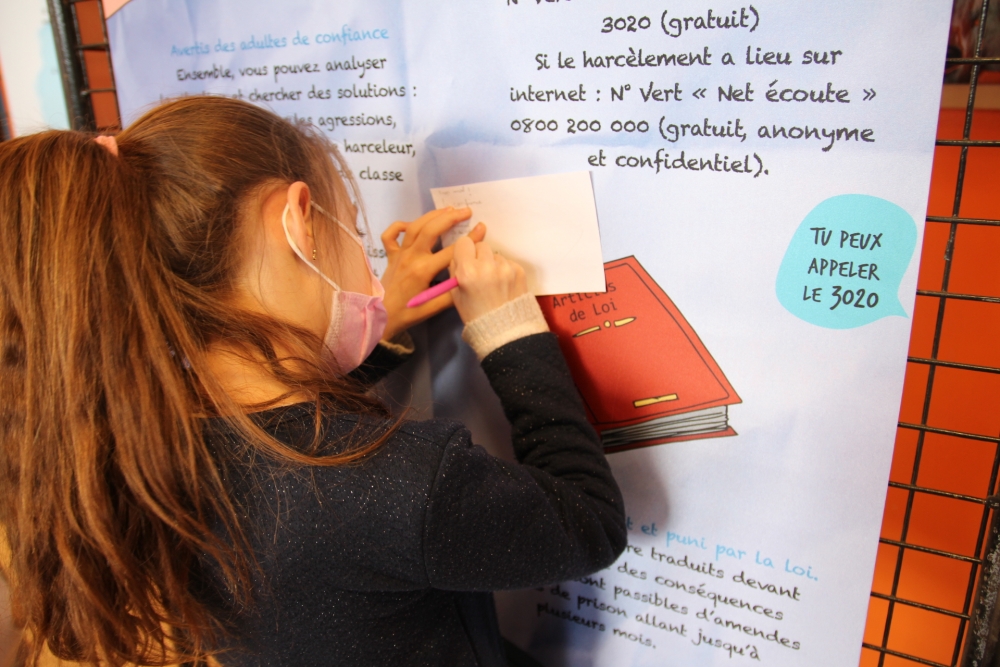 Avertis des adultes de confiance
Ensemble, vous pouvez analyser
et chercher des solutions :
agressions,
harceleur,
classe
N° Vert
3020 (gratuit)
Si le harcèlement a lieu sur
internet : N° Vert « Net écoute »
0800 200 000 (gratuit, anonyme
et confidentiel).
TU PEUX
APPELER
LE 3020
Articles
de Loi
et puni par la loi.
traduits devant
des conséquences
passibles d'amendes
de prison allant jusqu'à
plusieurs mois.